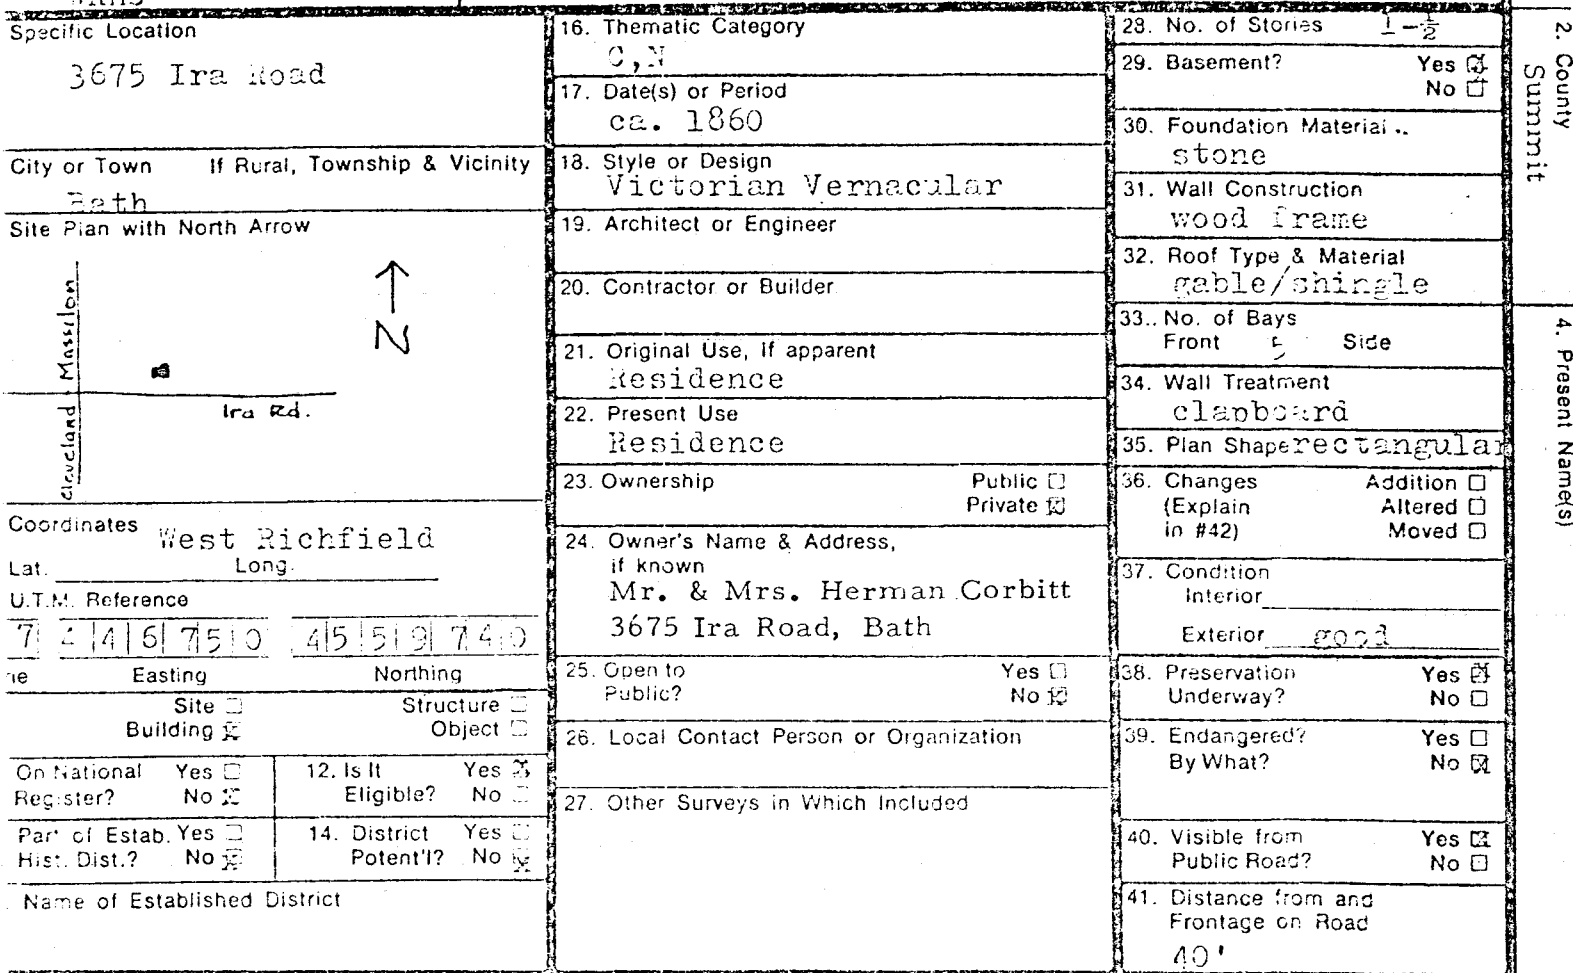 Specific Location
3675 Ira Road
City or Town If Rural, Township & Vicinity
Bath
Site Plan with North Arrow
Cleveland-Massilon
N
Ira Rd.
Coordinates West Richfield
Lat. Long.
U.T.M. Reference
7 4 4 6 7 5 0 4 5 5 9 7 4 0
Easting Northing
Site ☐ Structure ☐
Building ☒ Object ☐
On National Yes ☐
Register? No ☒
12. Is It Yes ☒
Eligible? No ☐
Part of Estab. Yes ☐
Hist. Dist.? No ☒
14. District Yes ☐
Potent'l? No ☒
Name of Established District
16. Thematic Category
C,N
17. Date(s) or Period
ca. 1860
18. Style or Design
Victorian Vernacular
19. Architect or Engineer
20. Contractor or Builder
21. Original Use, if apparent
Residence
22. Present Use
Residence
23. Ownership Public ☐
Private ☒
24. Owner's Name & Address,
if known
Mr. & Mrs. Herman Corbitt
3675 Ira Road, Bath
25. Open to Yes ☐
Public? No ☒
26. Local Contact Person or Organization
27. Other Surveys in Which Included
28. No. of Stories 1-½
29. Basement? Yes ☒
No ☐
30. Foundation Material
stone
31. Wall Construction
wood frame
32. Roof Type & Material
gable/shingle
33. No. of Bays
Front 5 Side
34. Wall Treatment
clapboard
35. Plan Shape rectangular
36. Changes Addition ☐
(Explain Altered ☐
in #42) Moved ☐
37. Condition
Interior
Exterior good
38. Preservation Yes ☒
Underway? No ☐
39. Endangered? Yes ☐
By What? No ☒
40. Visible from Yes ☒
Public Road? No ☐
41. Distance from and
Frontage on Road
40'
2. County
Summit
4. Present Name(s)